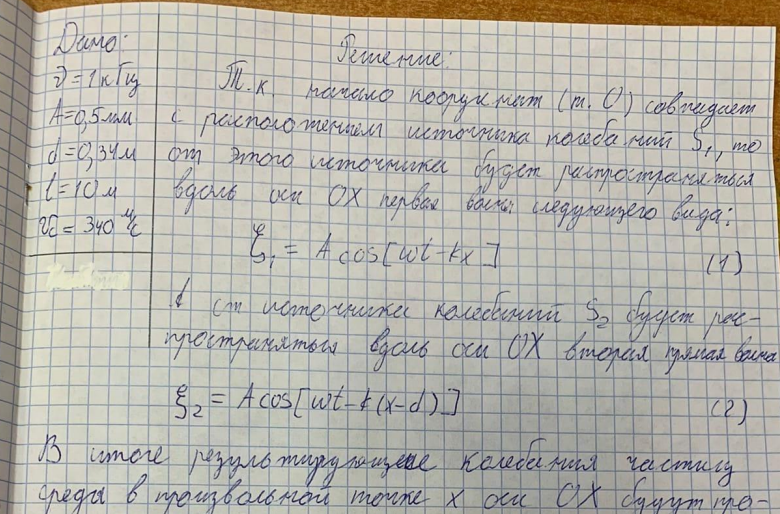 Дано:
Решение:
ν = 1 кГц
A = 0,5 мм
d = 0,34 м
l = 10 м
υс = 340 м/с
Т.к. начало координат (т. О) совпадает
с расположением источника колебаний S₁, то
от этого источника будет распространяться
вдоль оси OX первая волна следующего вида:
ξ₁ = A cos[ωt - kx] (1)
от источника колебаний S₂ будет рас-
пространяться вдоль оси OX вторая прямая волна
ξ₂ = A cos[ωt - k(x-d)] (2)
В итоге результирующие колебания частиц
среды в произвольной точке x оси OX будут про-